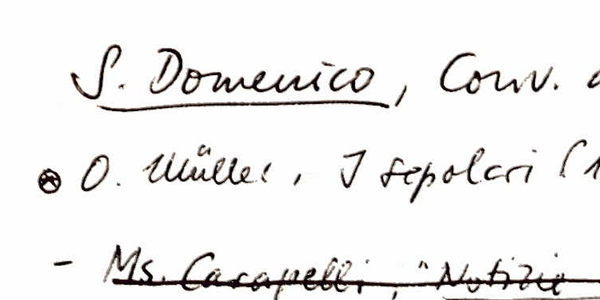 S. Domenico, Conv.
O. Müller, I sepolcri (1
- Ms. Carapelli, "Notizie